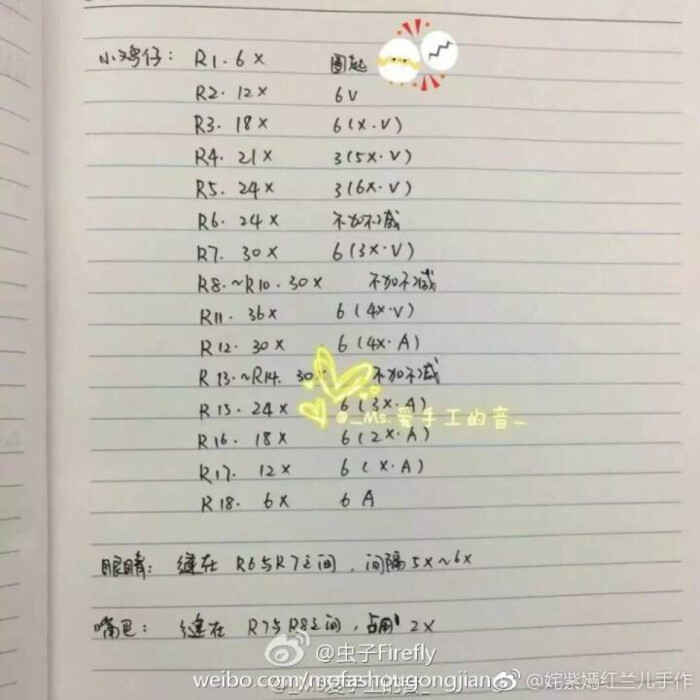 小鸡仔: R1. 6X 圈起
R2. 12X 6V
R3. 18X 6(X.V)
R4. 21X 3(5X.V)
R5. 24X 3(6X.V)
R6. 24X 不加不减
R7. 30X 6(3X.V)
R8.~R10. 30X 不加不减
R11. 36X 6(4X.V)
R12. 30X 6(4X.A)
R13.~R14. 30X 不加不减
R15. 24X 6(3X.A)
@_Ms.爱手工的音_
R16. 18X 6(2X.A)
R17. 12X 6(X.A)
R18. 6X 6A
眼睛: 缝在 R6与R7之间, 间隔5X~6X
嘴巴: 缝在 R7与R8之间, 占用 2X
@虫子Firefly
weibo.com/mofashougongjiang
@姹紫嫣红兰儿手作